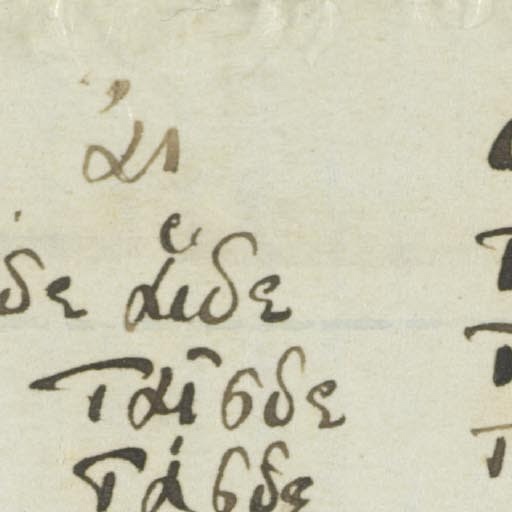 αἱ
δε αἵδε
ταῖσδε
τάσδε